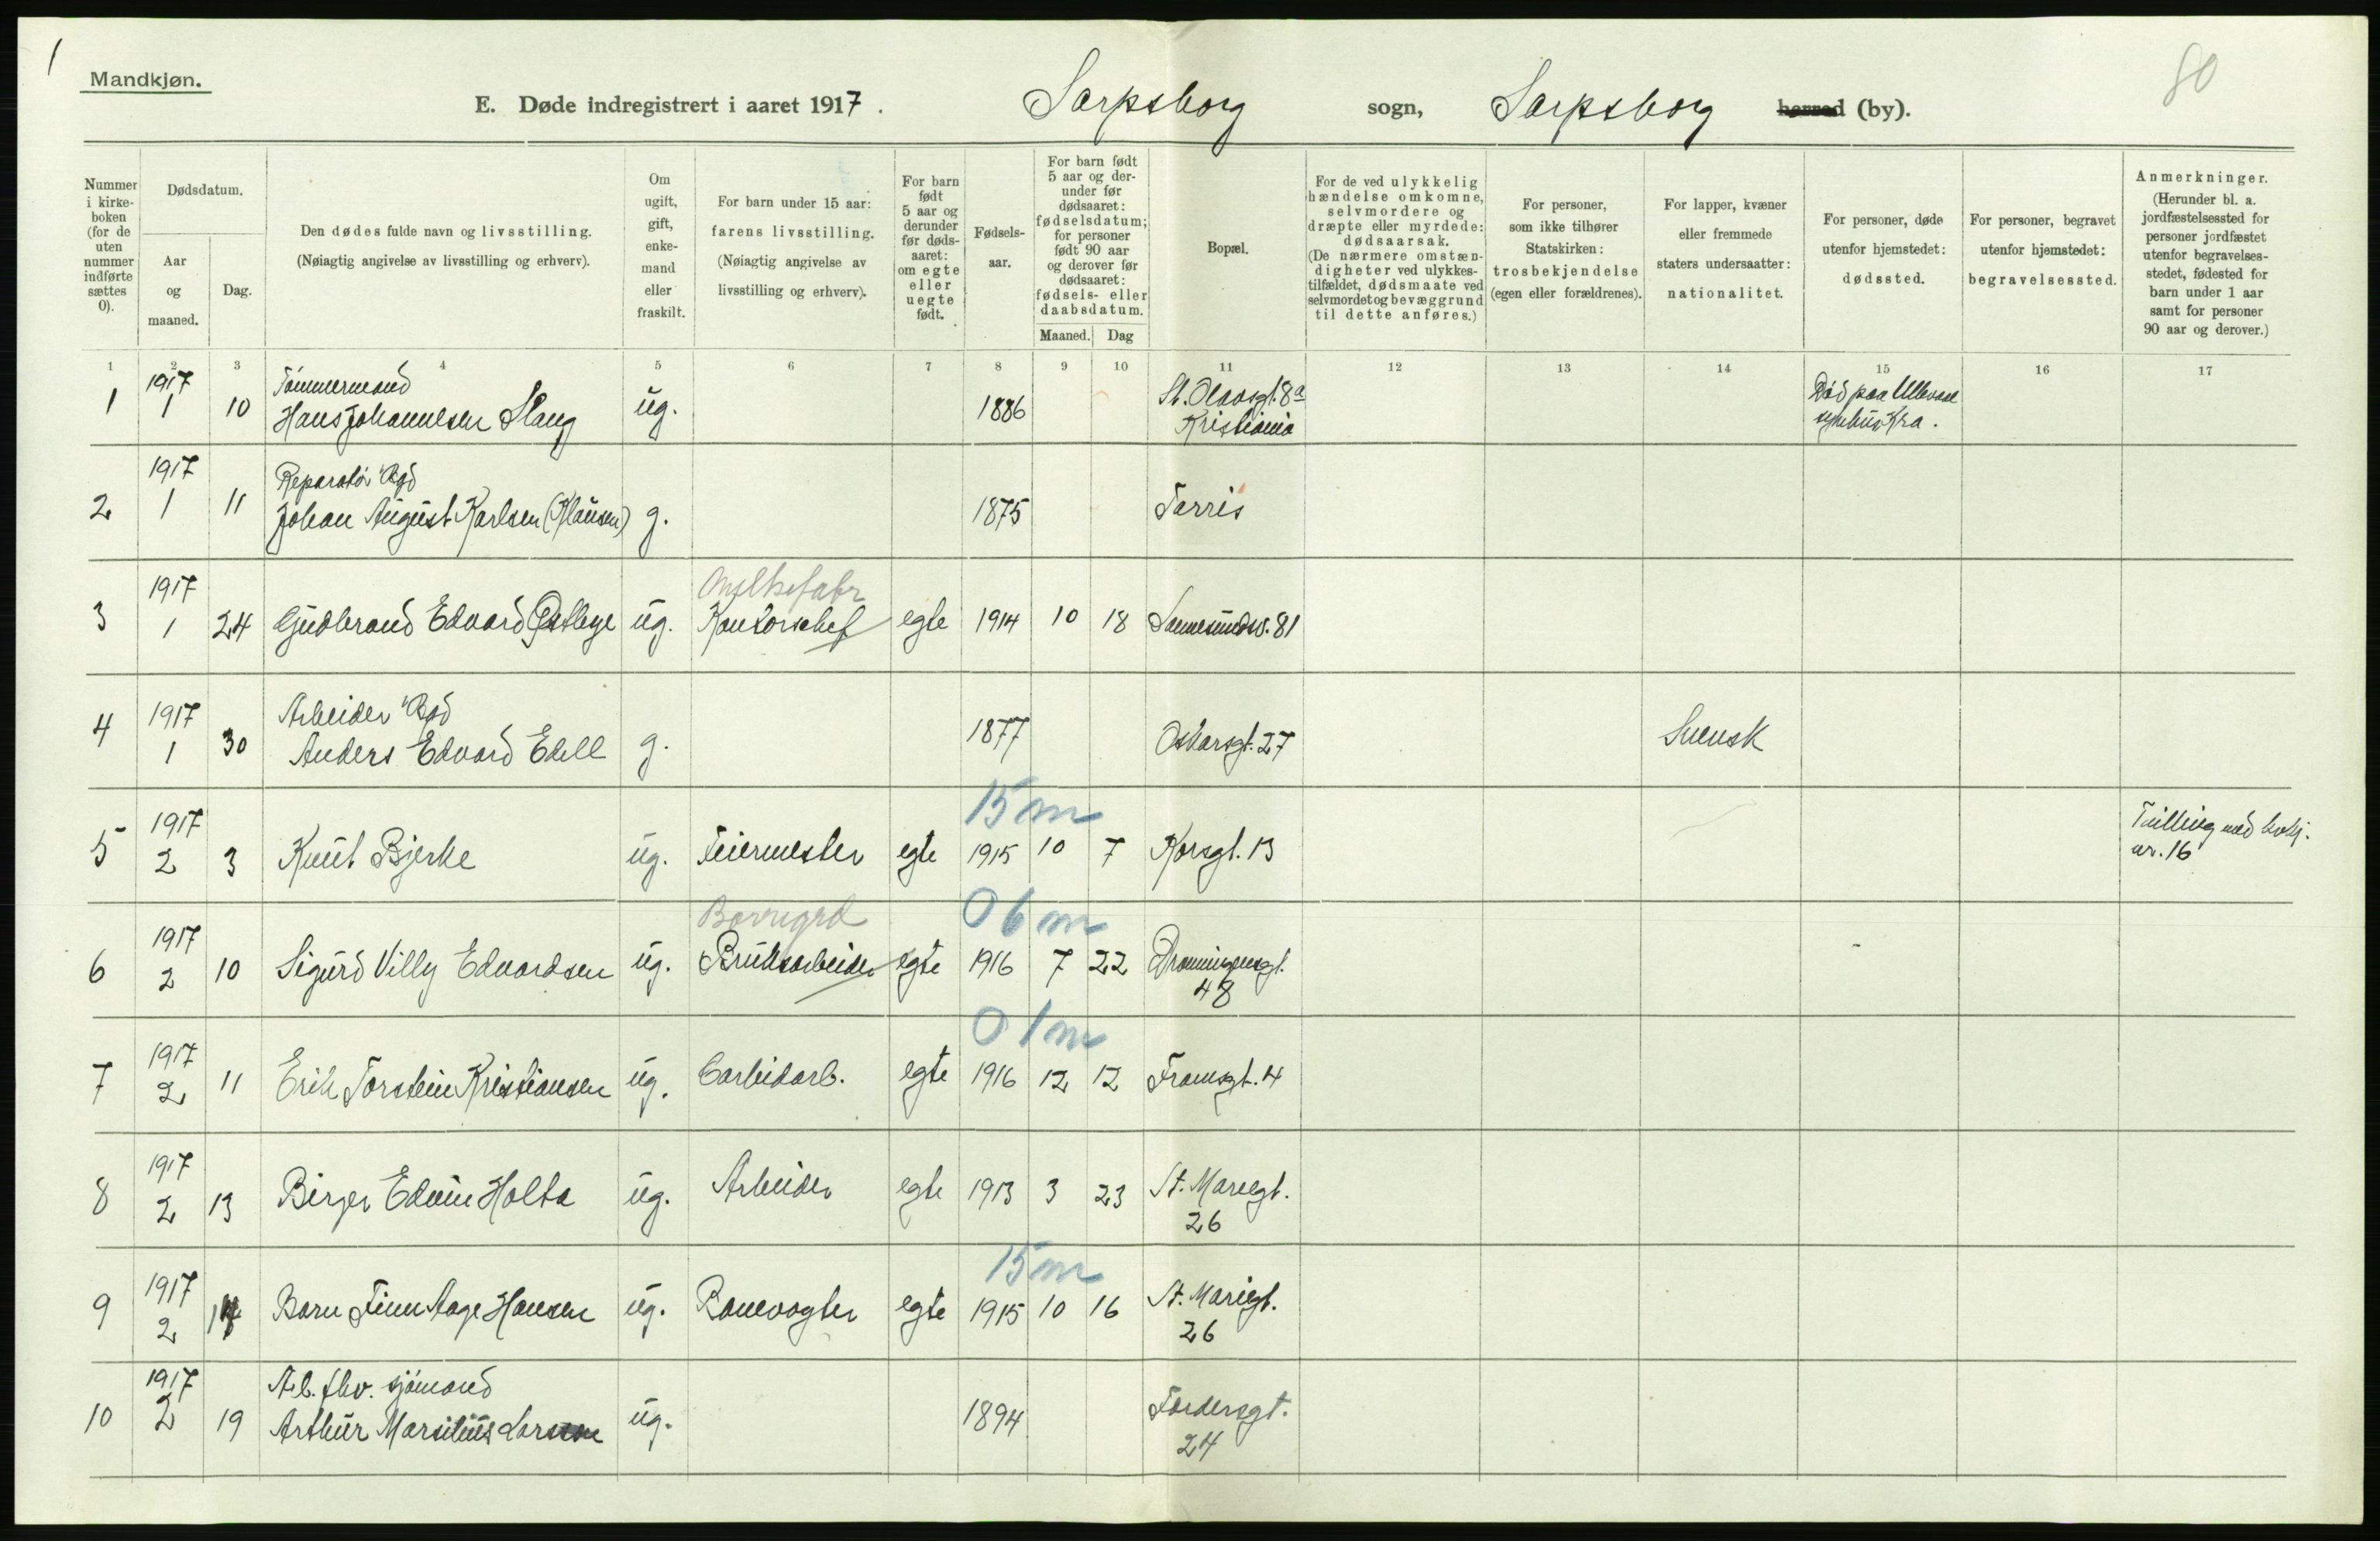 1
Mandkjøn.
80
E. Døde indregistrert i aaret 1917. Sarpsborg sogn, Sarpsborg herred (by).
Nummer i kirkeboken (for de uten nummer indførte sættes 0).
Dødsdatum.
Aar og maaned.
Dag.
Den dødes fulde navn og livsstilling.
(Nøiagtig angivelse av livsstilling og erhverv).
Om ugift, gift, enkemand eller fraskilt.
For barn under 15 aar: farens livsstilling.
(Nøiagtig angivelse av livsstilling og erhverv).
For barn født 5 aar og derunder før dødsaaret: om egte eller uegte født.
Fødselsaar.
For barn født 5 aar og derunder før dødsaaret: fødselsdatum; for personer født 90 aar og derover før dødsaaret: fødsels- eller daabsdatum.
Maaned. Dag
Bopæl.
For de ved ulykkelig hændelse omkomne, selvmordere og dræpte eller myrdede: dødsaarsak.
(De nærmere omstændigheter ved ulykkestilfældet, dødsmaate ved selvmordet og bevæggrund til dette anføres.)
For personer, som ikke tilhører Statskirken: trosbekjendelse (egen eller forældrenes).
For lapper, kvæner eller fremmede staters undersaatter: nationalitet.
For personer, døde utenfor hjemstedet: dødssted.
For personer, begravet utenfor hjemstedet: begravelsessted.
Anmerkninger.
(Herunder bl. a. jordfæstelsessted for personer jordfæstet utenfor begravelsesstedet, fødested for barn under 1 aar samt for personer 90 aar og derover.)
1 2 3 4 5 6 7 8 9 10 11 12 13 14 15 16 17
1917 Tømmermand St. Olavsgt. 8a Død paa Ullevaal
1 1 10 Hans Johannesen Slang ug. 1886 Kristiania sykehus Kra.
1917 Reparatør
2 1 11 Johan August Karlsen (Klausen) g. 1875 Tarris
1917
3 1 24 Gudbrand Edvard Østbye ug. Kontorschef egte 1914 10 18 Sannesundsv. 81
1917 Arbeider
4 1 30 Anders Edvard Edell g. 1877 Oskarsgt. 27 Svensk
15 m
1917 Tvilling med kvkj.
5 2 3 Knut Bjerke ug. Feiermester egte 1915 10 7 Korsgt. 13 nr. 16
Borregrd 06 m
1917
6 2 10 Sigurd Villy Edvardsen ug. Bruksarbeider egte 1916 7 22 Dronningensgt.
48
01 m
1917
7 2 11 Erik Torstein Kristiansen ug. Carbidarb. egte 1916 12 12 Framsgt. 4
1917
8 2 13 Birger Edvin Holta ug. Arbeider egte 1913 3 23 St. Mariegt.
26
15 m
1917
9 2 14 Barn Finn Aage Hansen ug. Banevogter egte 1915 10 16 St. Mariegt.
26
1917 Arb. fhv. sjömand
10 2 19 Arthur Marsilius Larsen ug. 1894 Fordersgt.
24